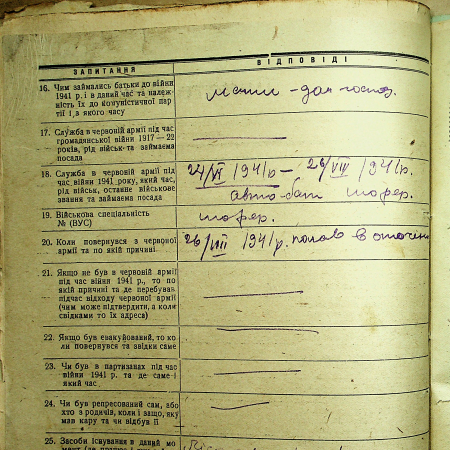 ЗАПИТАННЯ
ВІДПОВІДІ
16. Чим займались батьки до війни
1941 р. і в даний час та належ-
ність їх до комуністичної пар
тії і з якого часу
мати - дом господ.
17. Служба в червоній армії під час
громадянської війни 1917—22
років, рід військ та займаєма
посада
18. Служба в червоній армії під
час війни 1941 року, який час,
рід військ, останнє військове
звання та займаєма посада
24/VI 1941р — 26/VIII 1941р.
авто-бат шофер.
19. Військова спеціальність
№ (ВУС)
шофер.
20. Коли повернувся з червоної
армії та по якій причині
26/VIII 1941р. попав в оточен
21. Якщо не був в червоній армії
під час війни 1941 р., то по
якій причині та де перебував
підчас відходу червоної армії
(чим може підтвердити, а коли
свідками то їх адреса)
22. Якщо був евакуйований, то ко
ли повернувся та звідки саме
23. Чи був в партизанах під час
війни 1941 р. та де саме і
який час
24. Чи був репресований сам, або
хто з родичів, коли і защо, яку
мав кару та чи відбув її
25. Засоби існування в даний мо